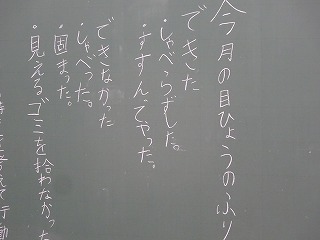 今月の目ひょうのふり
できた
・しゃべらずした。
・すすんでやった。
できなかった
・しゃべった。
・固まった。
・見えるゴミを拾わなかった
考えて行動